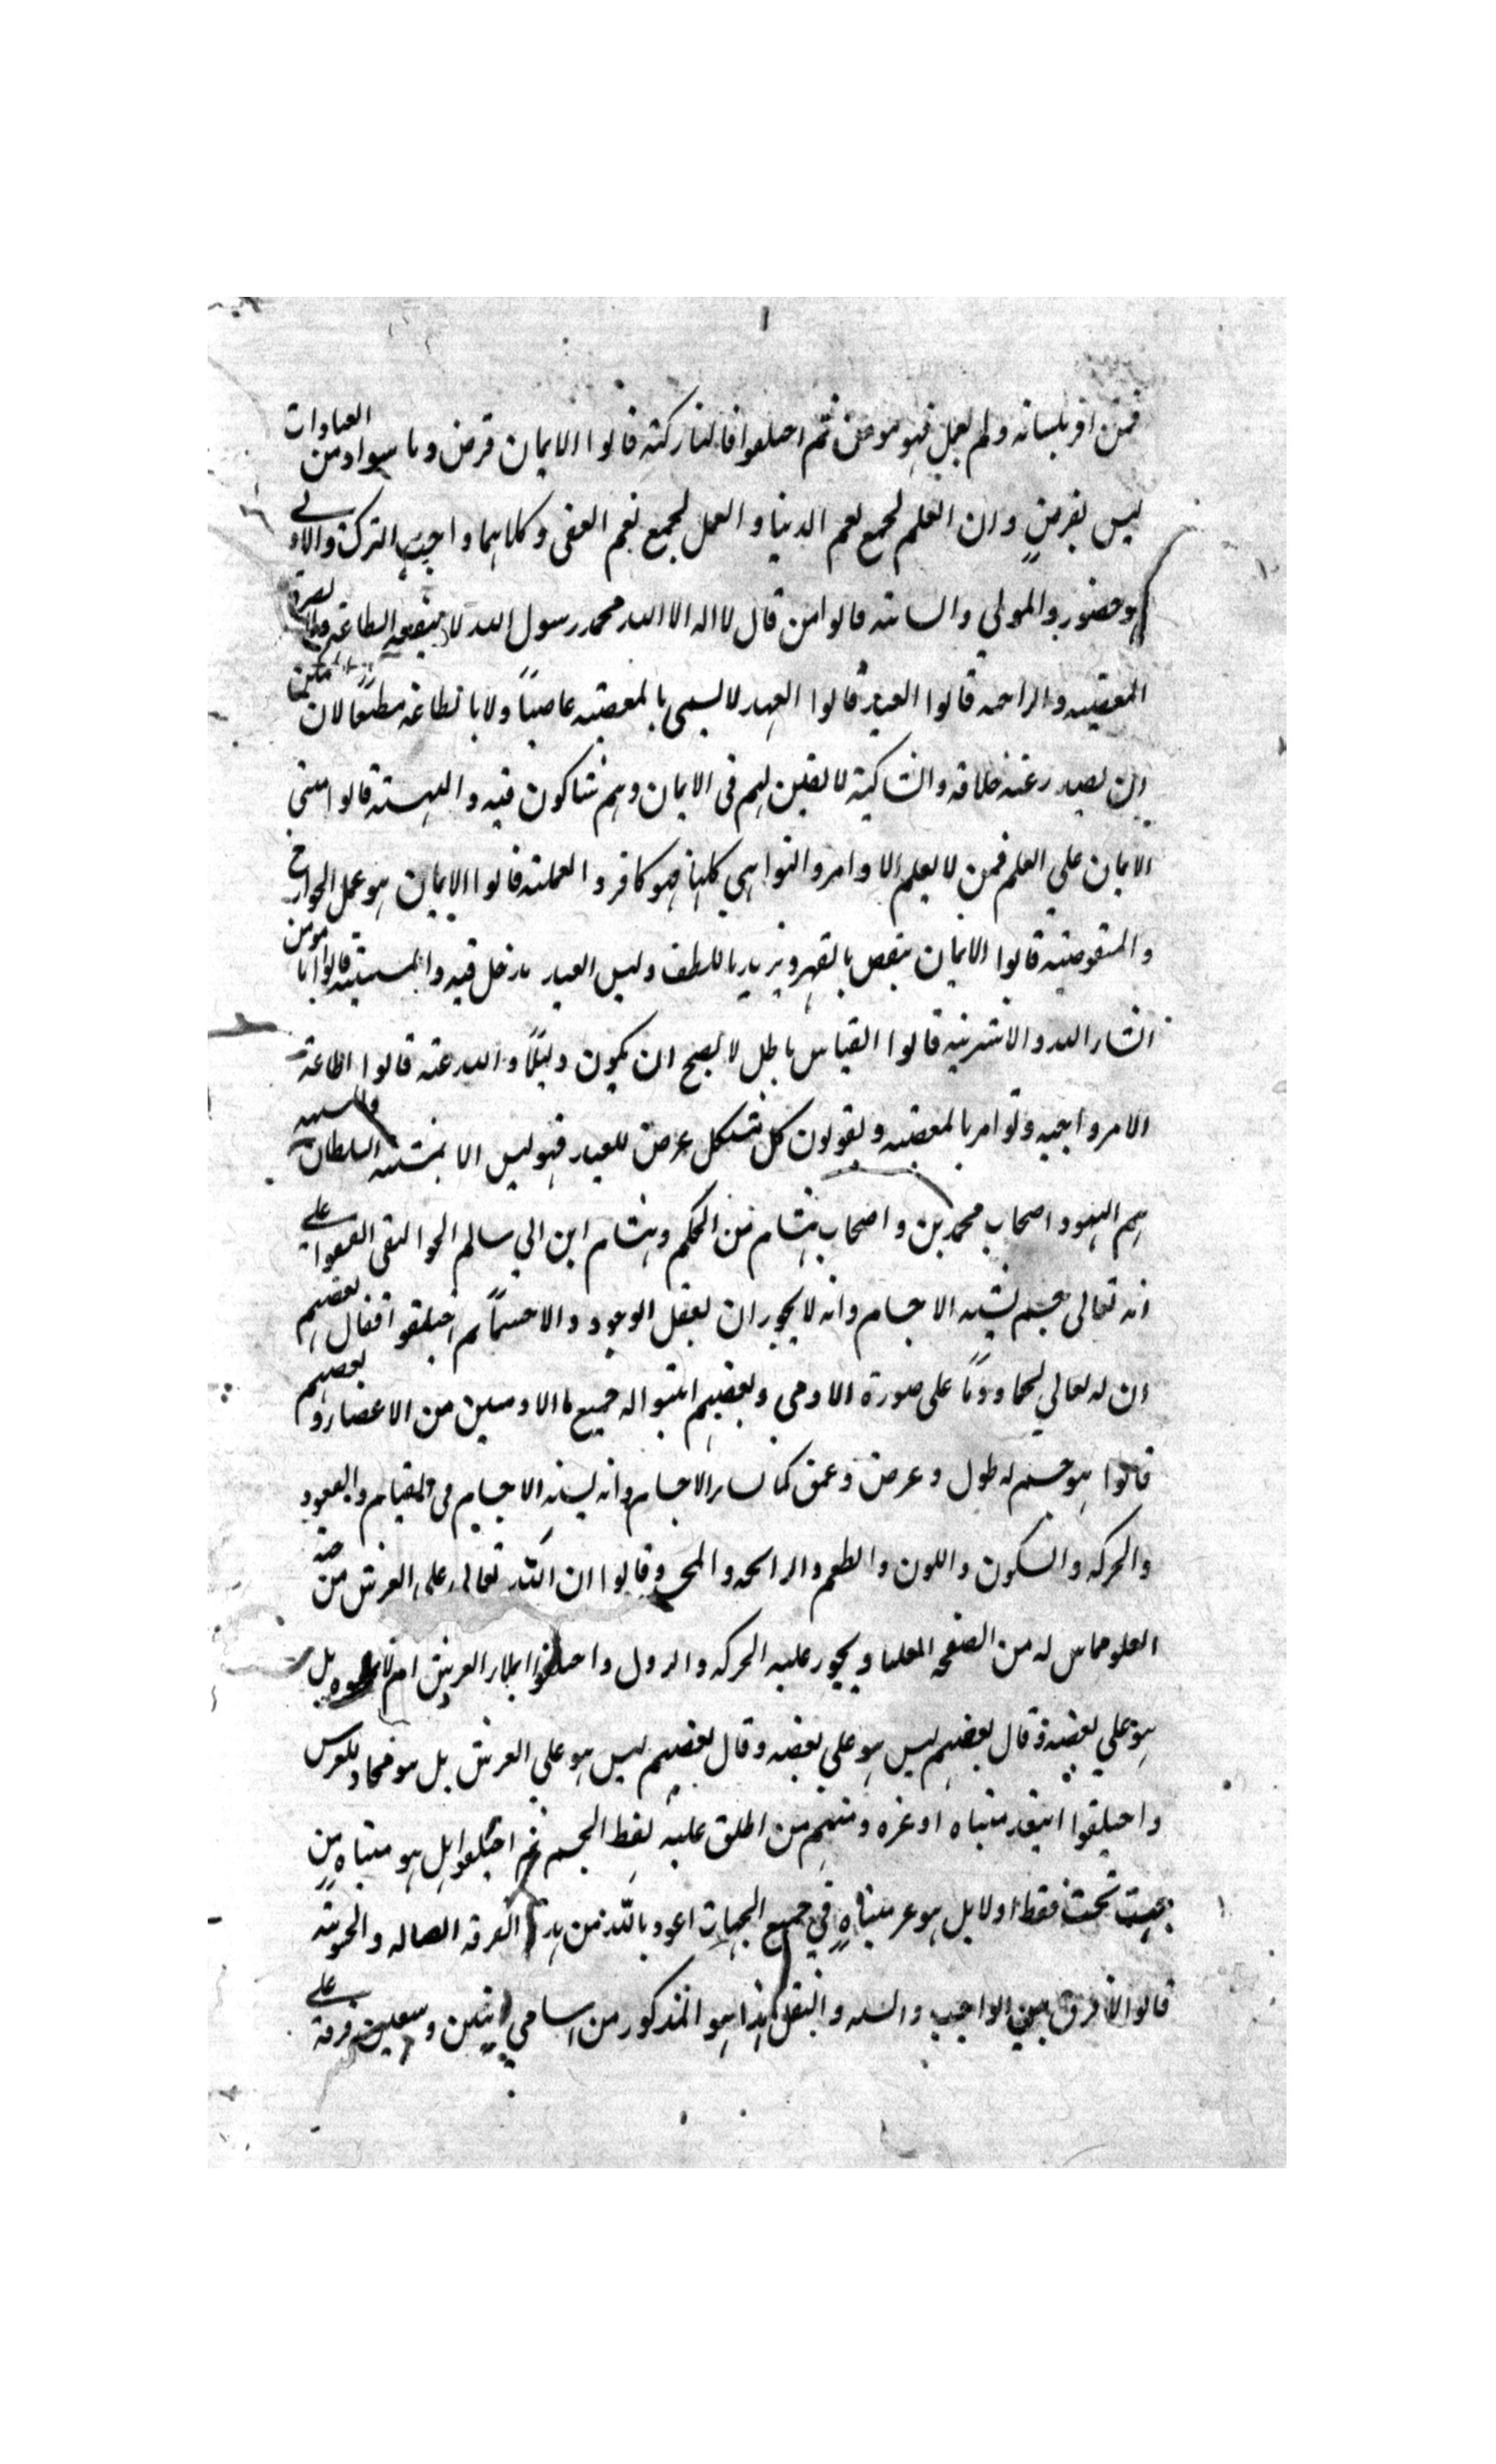 فمن اقر بلسانه ولم يعمل فهو مومن ثم اختلفوا فالتاركية قالوا الايمان فرض وما سواه من العبادات
ليس بفرض وان العلم لجميع نعم الدنيا و العمل لجميع نعم العقبى وكلاهما واجب الترك والاولى
هو حضور المولي والسائبة قالوا من قال لا اله الا الله محمد رسول الله لا ينفعه الطاعة
المعصية والراجية قالوا العبد لا يسمى بالمعصية عاصياً ولا بالطاعة مطيعا لان
ان يصدر عنه خلافه والشاكية لا يقين لهم فى الايمان وهم شاكون فيه و البيهسية قالوا مبنى
الايمان علي العلم فمن لا يعلم الاوامر والنواهي كلها فهو كافر و العملية قالوا الايمان هو عمل الجوارح
والمنقوصية قالوا الايمان ينقص بالقهر ويزيد باللطف وليس العبد مدخل فيه و المستثنية قالوا انا مومن
انشاء الله و الاشرية قالوا القياس باطل لا يصح ان يكون دليلاً و البدعية قالوا اطاعة
الامر واجبه ولو امر بالمعصية و يقولون كل شكل عرض للعبد فهو ليس الا بمشية السلطان والمشبهة
هم اليهود اصحاب محمد بن و اصحاب هشام بن الحكم وهشام ابن ابي سالم الجواليقى اتفقوا على
انه تعالى جسم يشبه الاجسام وانه لا يجوز ان يعقل الوجود و الا جسماً ثم اختلفوا فقال بعضهم
ان له تعالي لحما ودما على صورة الادمى وبعضهم اثبتوا له جميع ما الادميين من الاعضاء و بعضهم
قالوا هو جسم له طول وعرض وعمق كما لسائر الاجسام وانه يشبه الاجسام فى القيام والقعود
والحركه والسكون واللون والطعم والرائحه و وقالوا ان الله تعالى على العرش من جهة
العلو مماس له من الصفحه العليا ويجوز عليه الحركه والنزول و اختلفوا ايملأ العرش ام لا بل
هو علي بعضه وقال بعضهم ليس هو علي بعضه وقال بعضهم ليس هو علي العرش بل هو محاذ للعرش
و اختلفوا ابعد متناه او غيره ومنهم من اطلق عليه لفظ الجسم ثم اختلفوا هل هو متناه من
جهت تحت فقط اولا بل هو غير متناهٍ في جميع الجهات اعوذ بالله من هذه الفرقه الضاله و الحشوية
قالوا لا فرق بين الواجب والسنه والنفل هذا هو المذكور من اسامي اثنين وسبعين فرقة على